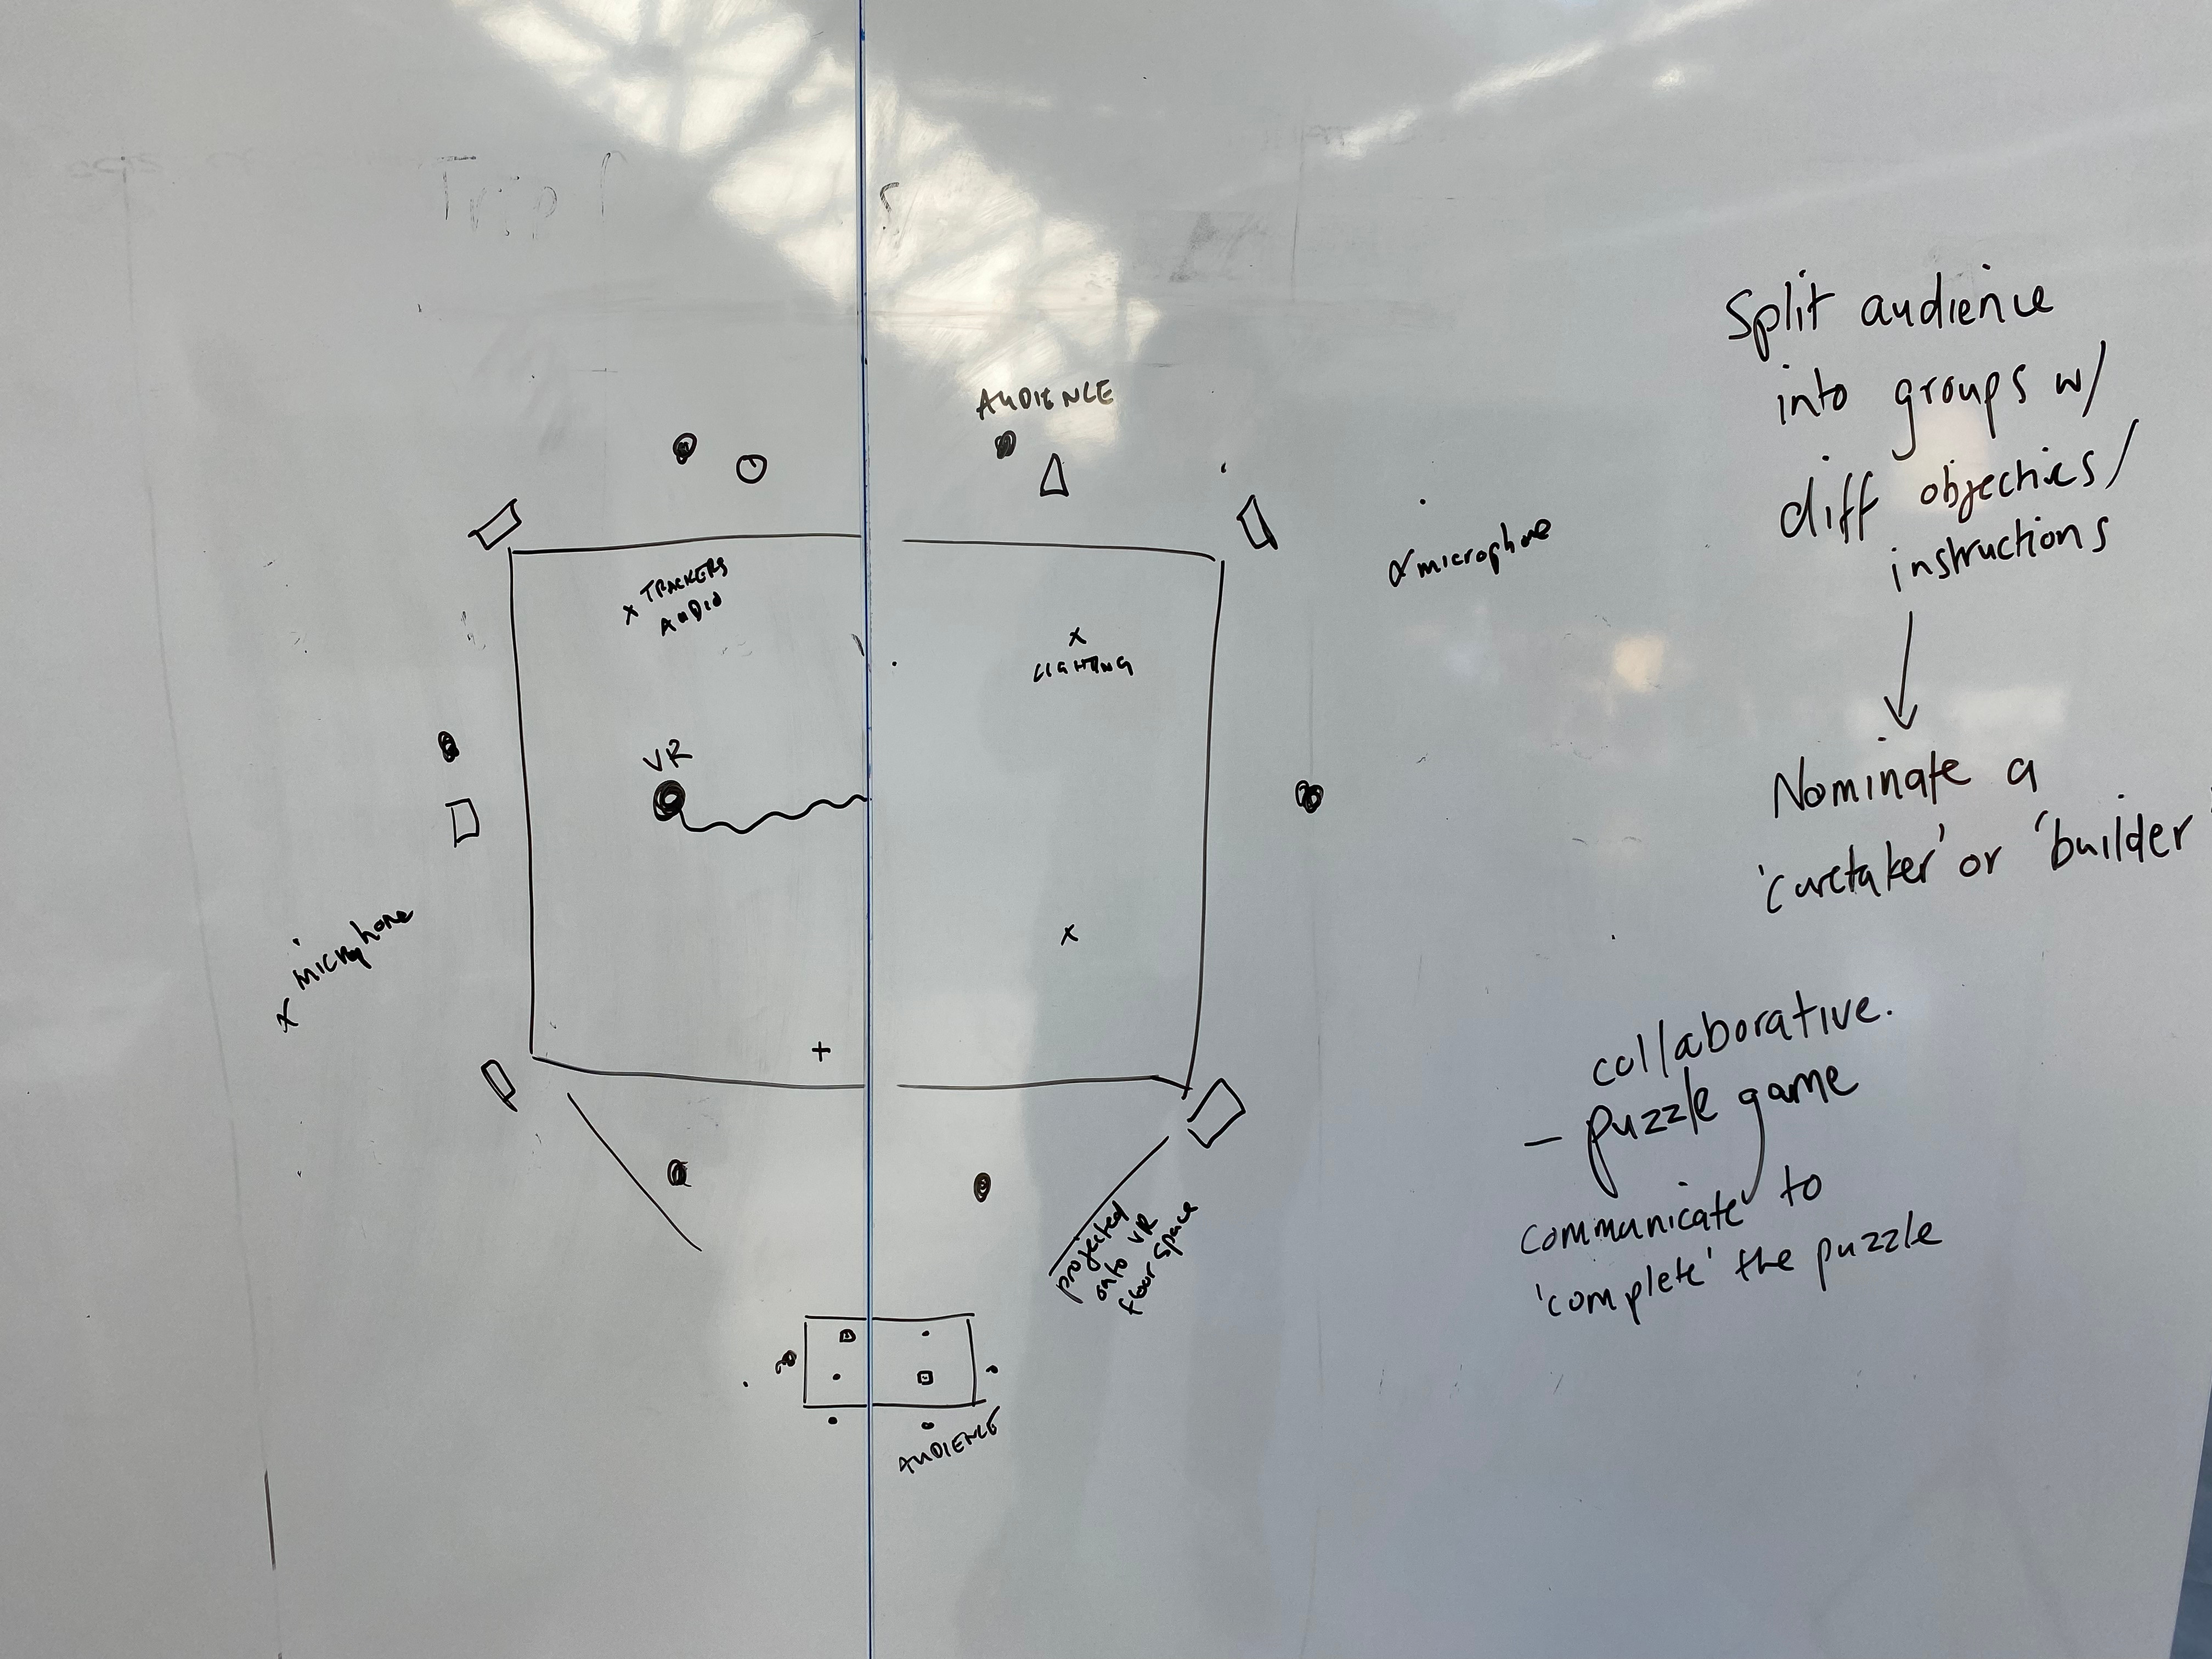 AUDIENCE
TRACKERS
AUDIO
LIGHTING
VR
microphone
microphone
projected
onto VR
floor space
AUDIENCE
Split audience
into groups w/
diff objectives/
instructions
Nominate a
'caretaker' or 'builder'
collaborative.
- puzzle game
communicate to
'complete' the puzzle